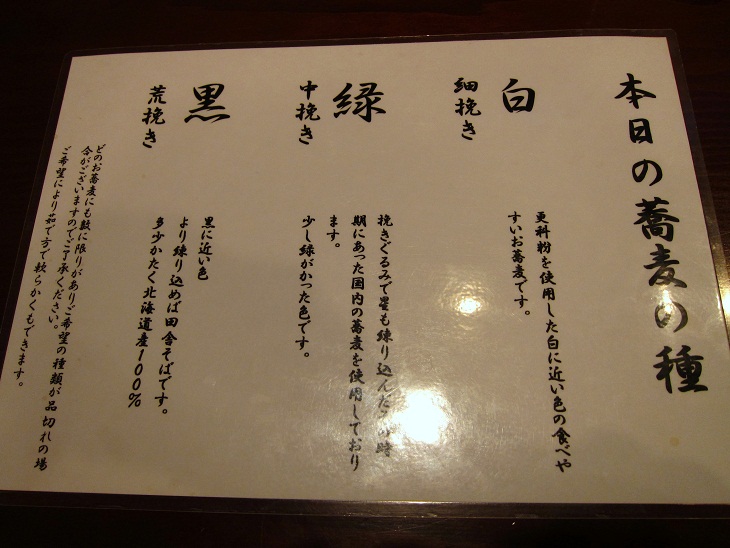 本日の蕎麦の種
白
細挽き
更科粉を使用した白に近い色の食べや
すいお蕎麦です。
緑
中挽き
挽きぐるみで星も練り込んだ 時
期にあった国内の蕎麦を使用しており
ます。
少し緑がかった色です。
黒
荒挽き
黒に近い色
より練り込めば田舎そばです。
多少かたく北海道産100%
どのお蕎麦にも数に限りがありご希望の種類が品切れの場
合がございますのでご了承ください。
ご希望により茹で方で軟らかくもできます。